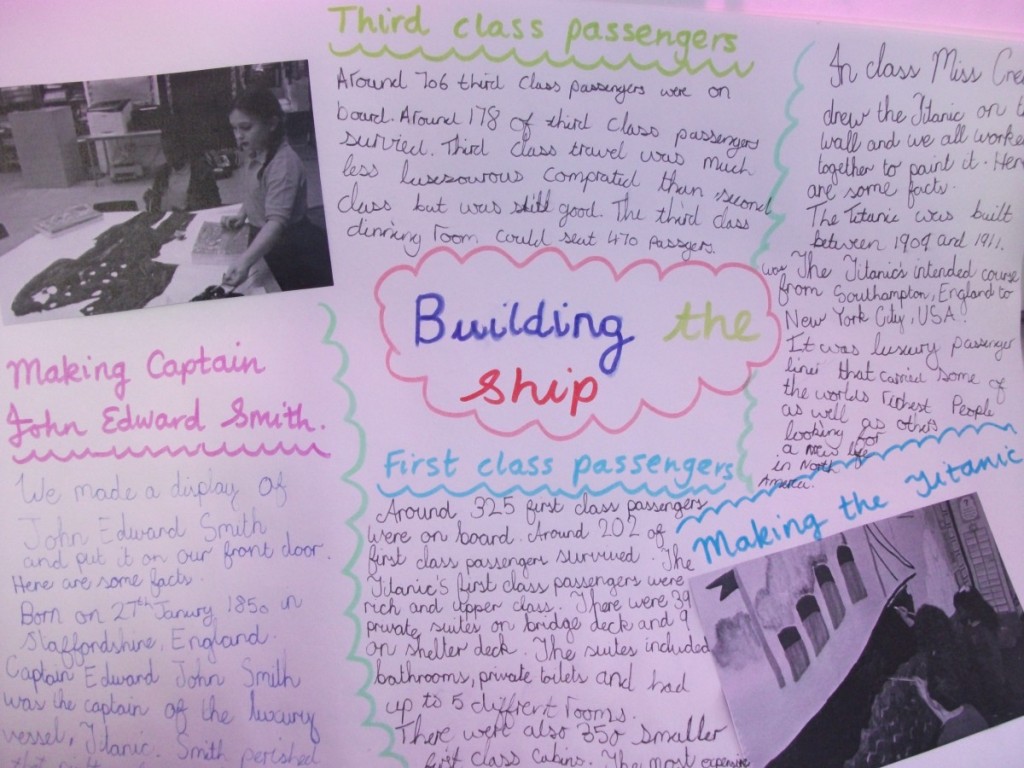 Third class passengers
Around 706 third class passengers were on
board. Around 178 of third class passengers
survied. Third class travel was much
less lusesowous comprated than second
class but was still good. The third class
dinning room could seat 470 passgers.
Building the
ship
Making Captain
John Edward Smith.
We made a display of
John Edward Smith
and put it on our front door.
Here are some facts.
Born on 27th Janury 1850 in
Staffordshire, England.
Captain Edward John Smith
was the captain of the luxury
vessel, Titanic. Smith perished
First class passengers
Around 325 first class passengers
were on board. Around 202 of
first class passengers survived. The
Titanic's first class passengers were
rich and upper class. There were 39
private suites on bridge deck and 9
on shelter deck. The suites included
bathrooms, private toilets and had
up to 5 diffrent rooms.
There were also 350 smaller
first class cabins. The most expensive
In class Miss
drew the Titanic on
wall and we all
together to paint it.
are some facts.
The Titanic was built
between 1909 and 1911.
was The Titanic's intended course
from Southampton, England to
New York City, USA.
It was luxury passenger
liner that carried some of
the worlds richest People
as well as others
looking for
a new life
in North
America.
Making the Titanic